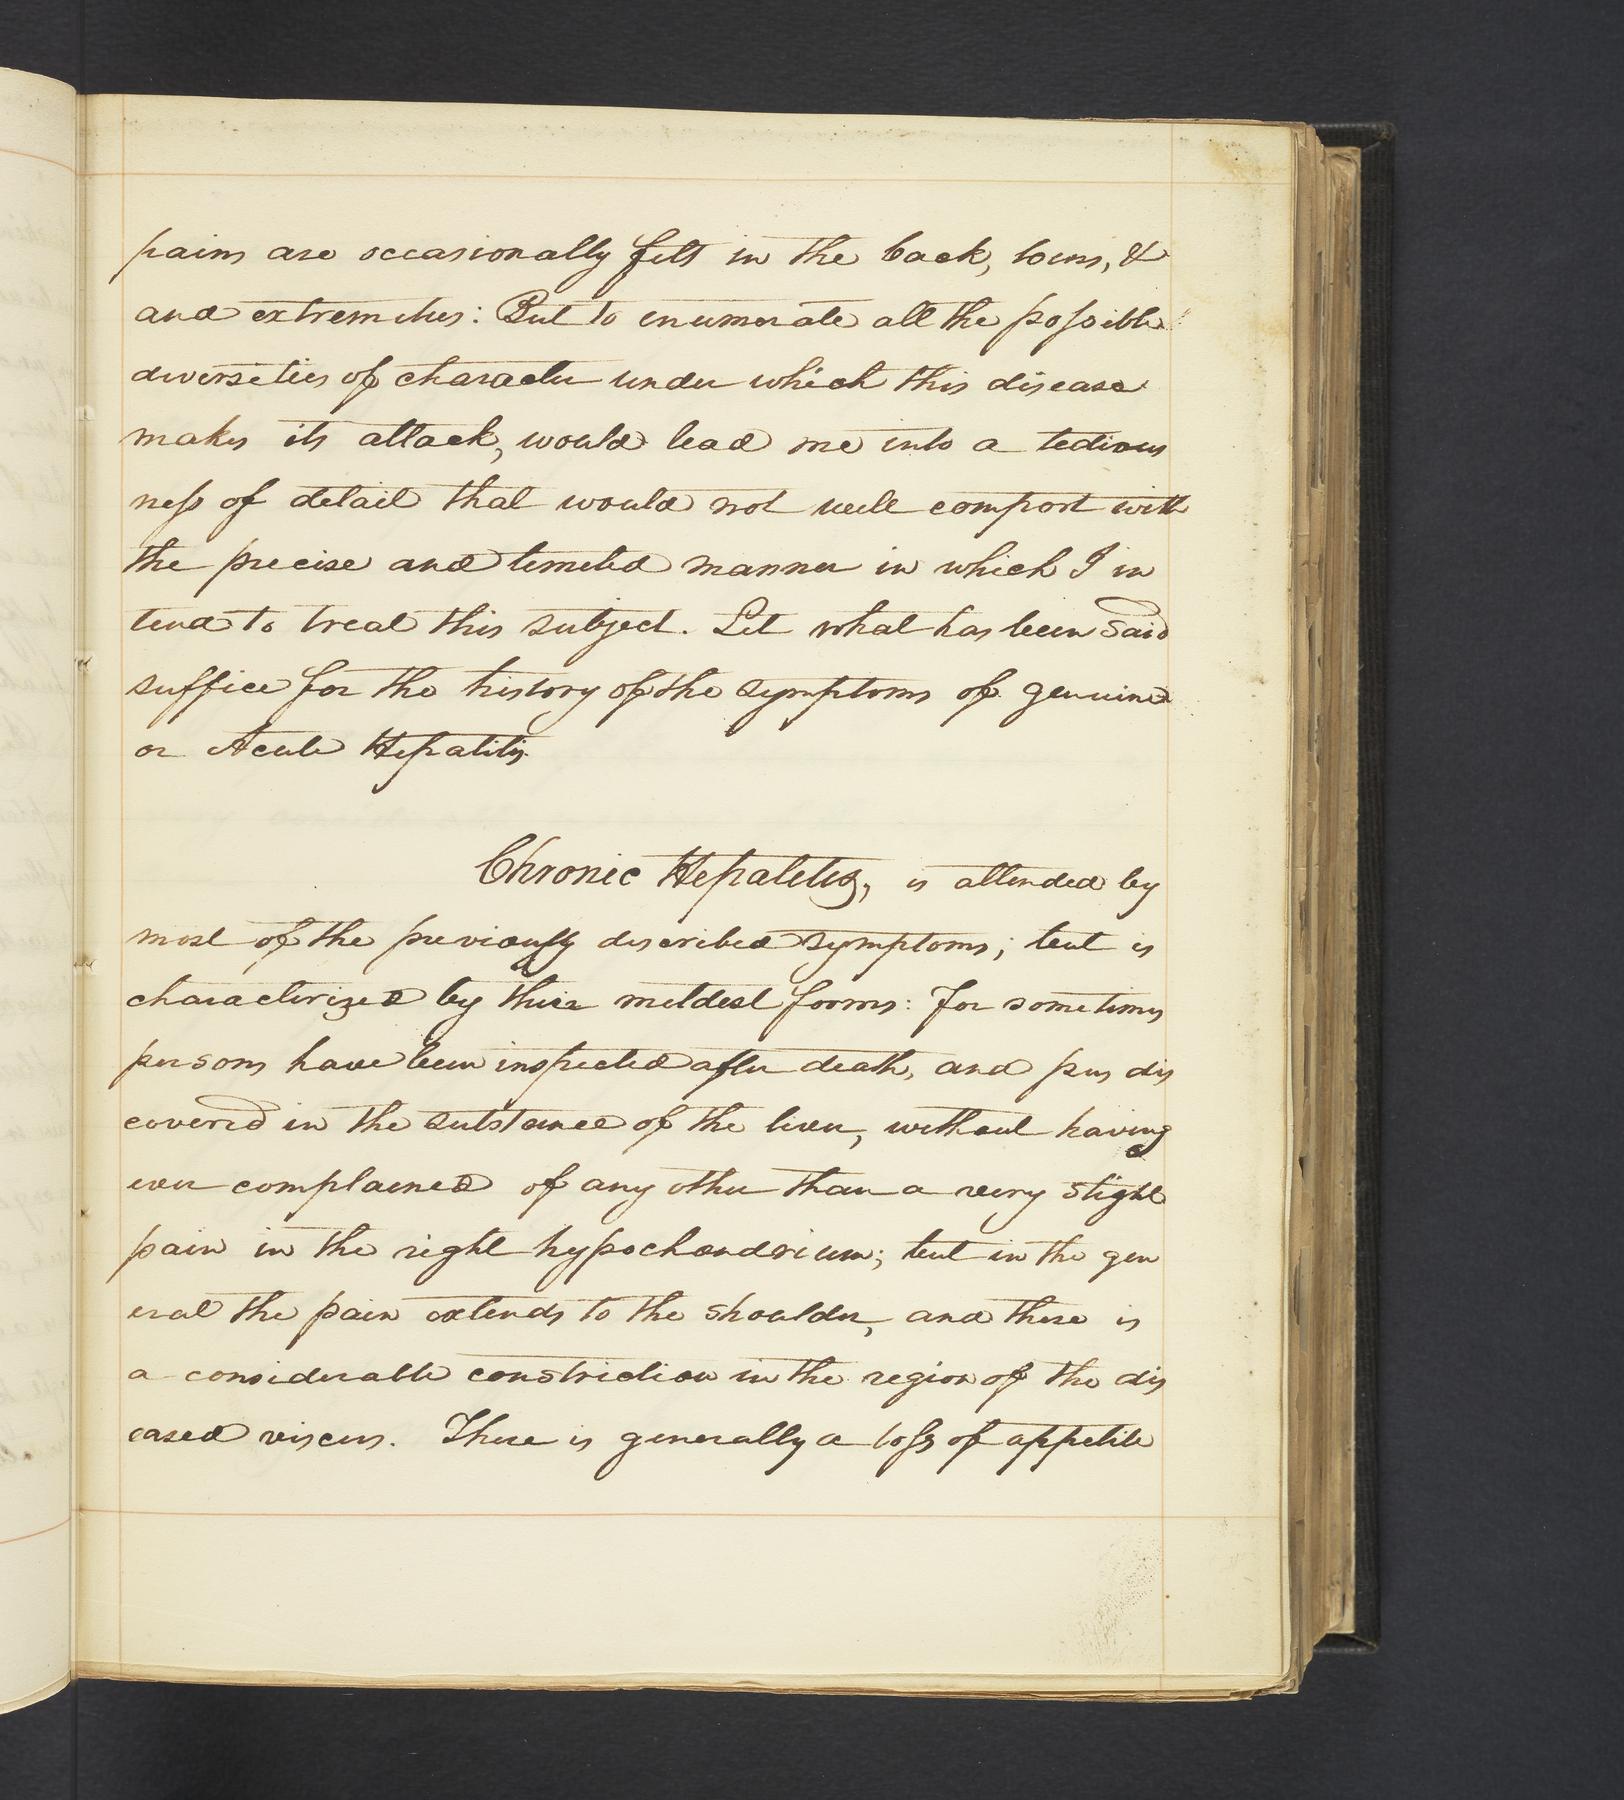 pains are occasionally felt in the back, loins, &
and extremities: But to enumerate all the possible
diversities of character under which this disease
makes its attack, would lead me into a tedious
ness of detail that would not well comport with
the precise and limited manner in which I in
tend to treat this subject. Let what has been said
suffice for the history of the symptoms of genuine
or Acute Hepatitis.
Chronic Hepatitis, is attended by
most of the previously described symptoms; but is
characterized by their mildest forms: For sometimes
persons have been inspected after death, and pus dis
covered in the substance of the liver, without having
ever complained of any other than a very slight
pain in the right hypochondrium; but in the gen
eral the pain extends to the shoulder, and there is
a considerable constriction in the region of the dis
eased viscus. There is generally a loss of appetite